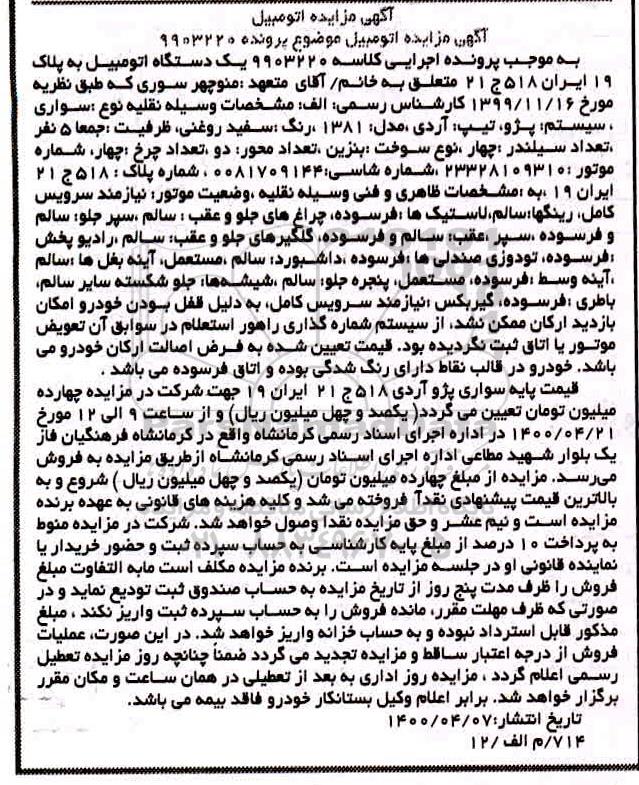 آگهی مزایده اتومبیل
آگهی مزایده اتومبیل موضوع پرونده ۹۹۰۳۲۲۰
به موجب پرونده اجرایی کلاسه ۹۹۰۳۲۲۰ یک دستگاه اتومبیل به پلاک
۱۹ ایران ۵۱۸ ج ۲۱ متعلق به خانم/ آقای متعهد :منوچهر سوری که طبق نظریه
مورخ ۱۳۹۹/۱۱/۱۶ کارشناس رسمی: الف: مشخصات وسیله نقلیه نوع :سواری
، سیستم: پژو، تیپ: آردی ،مدل: ۱۳۸۱ ،رنگ :سفید روغنی، ظرفیت :جمعا ۵ نفر
،تعداد سیلندر :چهار ،نوع سوخت :بنزین ،تعداد محور: دو ،تعداد چرخ :چهار، شماره
موتور :۲۳۳۲۸۱۰۹۳۱۰ ،شماره شاسی:۰۰۸۱۷۰۹۱۴۴ ، شماره پلاک : ۵۱۸ ج ۲۱
ایران ۱۹ ،به :مشخصات ظاهری و فنی وسیله نقلیه ،وضعیت موتور: نیازمند سرویس
کامل، رینگها:سالم،لاستیک ها :فرسوده، چراغ های جلو و عقب : سالم ،سپر جلو: سالم
و فرسوده ،سپر ،عقب: سالم و فرسوده، گلگیرهای جلو و عقب: سالم ،رادیو پخش
:فرسوده، تودوزی صندلی ها :فرسوده ،داشبورد: سالم ،مستعمل، آینه بغل ها :سالم
،آینه وسط :فرسوده، مستعمل، پنجره جلو: سالم ،شیشه‌ها: جلو شکسته سایر سالم،
باطری :فرسوده، گیربکس :نیازمند سرویس کامل، به دلیل قفل بودن خودرو امکان
بازدید ارکان ممکن نشد، از سیستم شماره گذاری راهور استعلام در سوابق آن تعویض
موتور یا اتاق ثبت نگردیده بود. قیمت تعیین شده به فرض اصالت ارکان خودرو می
باشد. خودرو در قالب نقاط دارای رنگ شدگی بوده و اتاق فرسوده می باشد .
قیمت پایه سواری پژو آردی ۵۱۸ ج ۲۱ ایران ۱۹ جهت شرکت در مزایده چهارده
میلیون تومان تعیین می گردد( یکصد و چهل میلیون ریال) و از ساعت ۹ الی ۱۲ مورخ
۱۴۰۰/۰۴/۲۱ در اداره اجرای اسناد رسمی کرمانشاه واقع در کرمانشاه فرهنگیان فاز
یک بلوار شهید مطاعی اداره اجرای اسناد رسمی کرمانشاه ازطریق مزایده به فروش
می‌رسد. مزایده از مبلغ چهارده میلیون تومان (یکصد و چهل میلیون ریال ) شروع و به
بالاترین قیمت پیشنهادی نقدآ فروخته می شد و کلیه هزینه های قانونی به عهده برنده
مزایده است و نیم عشر و حق مزایده نقدا وصول خواهد شد. شرکت در مزایده منوط
به پرداخت ۱۰ درصد از مبلغ پایه کارشناسی به حساب سپرده ثبت و حضور خریدار یا
نماینده قانونی او در جلسه مزایده است. برنده مزایده مکلف است مابه التفاوت مبلغ
فروش را ظرف مدت پنج روز از تاریخ مزایده به حساب صندوق ثبت تودیع نماید و در
صورتی که ظرف مهلت مقرر، مانده فروش را به حساب سپرده ثبت واریز نکند ، مبلغ
مذکور قابل استرداد نبوده و به حساب خزانه واریز خواهد شد. در این صورت، عملیات
فروش از درجه اعتبار ساقط و مزایده تجدید می گردد ضمناً چنانچه روز مزایده تعطیل
رسمی اعلام گردد ، مزایده روز اداری به بعد از تعطیلی در همان ساعت و مکان مقرر
برگزار خواهد شد. برابر اعلام وکیل بستانکار خودرو فاقد بیمه می باشد.
تاریخ انتشار:۱۴۰۰/۰۴/۰۷
۷۱۴/م الف /۱۲